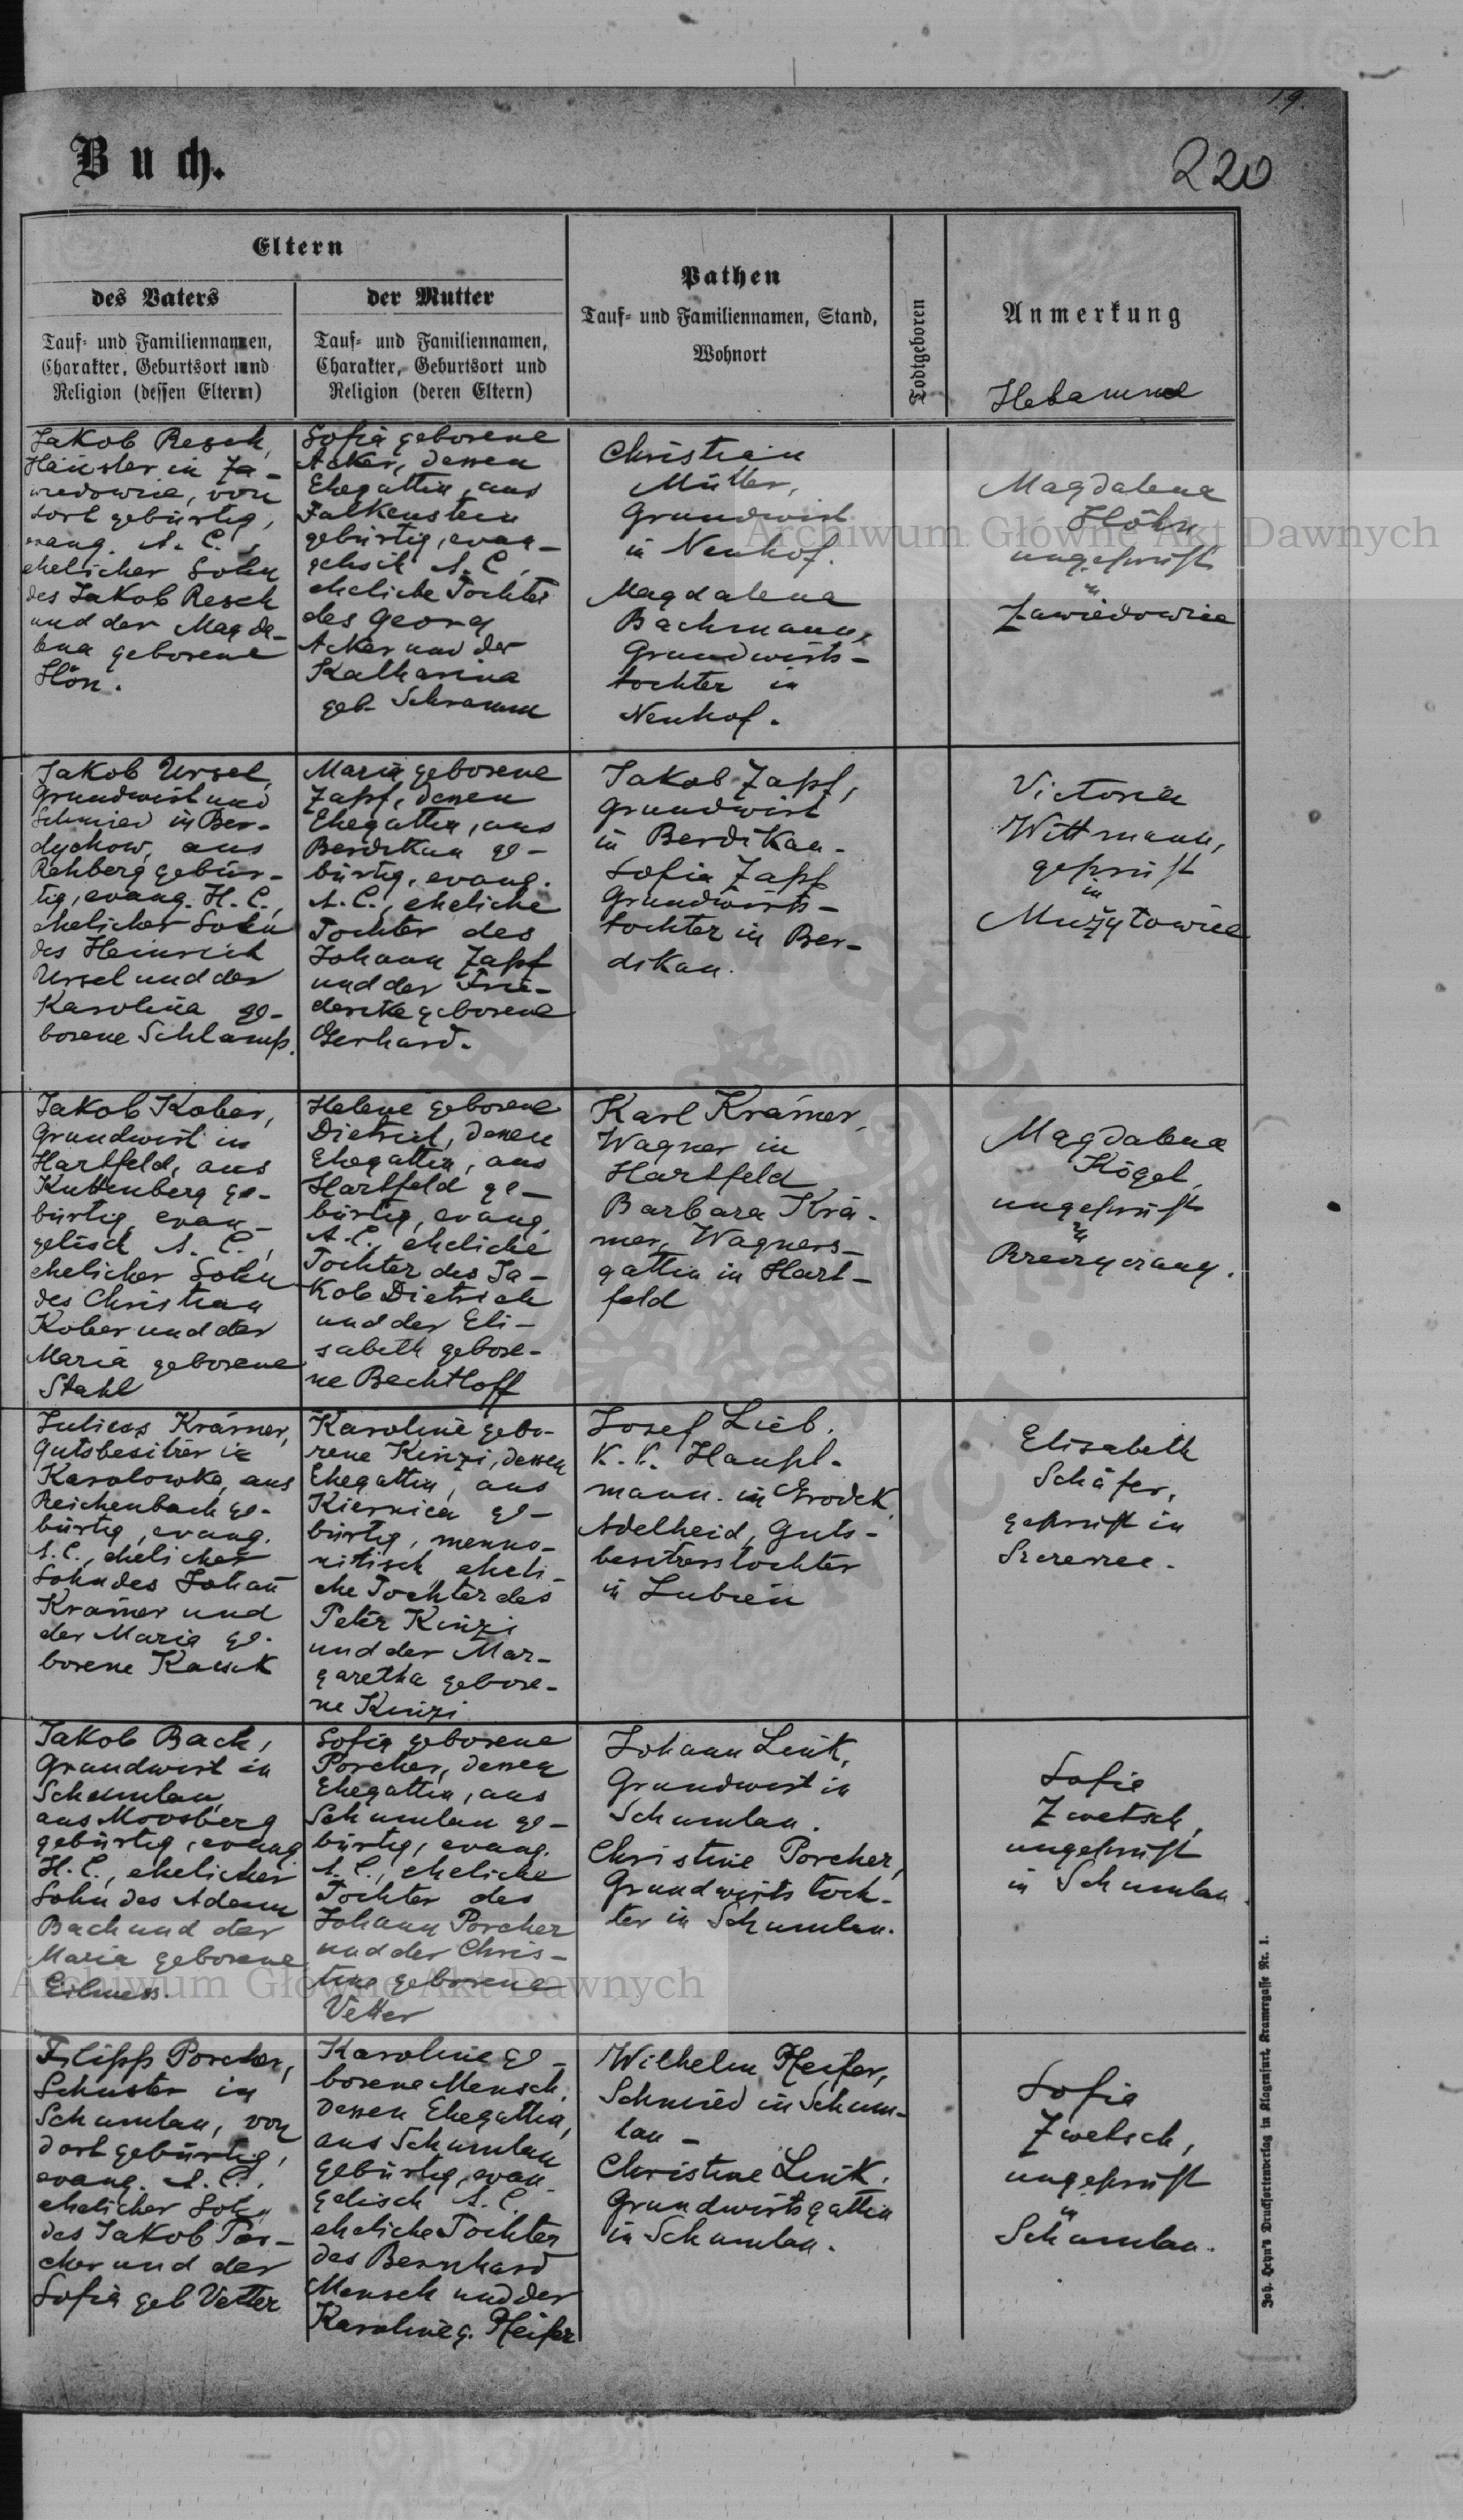 19.
Buch.
220
Eltern
des Vaters
Tauf- und Familiennamen,
Charakter, Geburtsort und
Religion (dessen Eltern)
der Mutter
Tauf- und Familiennamen,
Charakter, Geburtsort und
Religion (deren Eltern)
Pathen
Tauf- und Familiennamen, Stand,
Wohnort
Todtgeboren
Anmerkung
Hebamme
Jakob Resch,
Häusler in Za-
wiedowice, von
dort gebürtig,
evang. A. C.,
ehelicher Sohn
des Jakob Resch
und der Magda-
lena geborene
Hön.
Sofia geborene
Acker, dessen
Ehegattin, aus
Falkenstein
gebürtig, evan-
gelisch A. C.,
eheliche Tochter
des Georg
Acker und der
Katharina
geb. Schramm
Christian
Müller,
Grundwirt
in Neuhof.
Magdalena
Bachmann,
Grundwirts-
tochter in
Neuhof.
Magdalena
Höhn
ungeprüft
in
Zawiedowice
Jakob Ursel,
Grundwirt und
Schmied in Ber-
dychow, aus
Rehberg gebür-
tig, evang. H. C.,
ehelicher Sohn
des Heinrich
Ursel und der
Karolina ge-
borene Schlamp.
Maria geborene
Zapf, dessen
Ehegattin, aus
Berdikau ge-
bürtig, evang.
A. C., eheliche
Tochter des
Johann Zapf
und der Frie-
derike geborene
Gerhard.
Jakob Zapf,
Grundwirt
in Berdikau.
Sofia Zapf
Grundwirts-
tochter in Ber-
dikau.
Victoria
Wittmann,
geprüft
in
Mużyłowice
Jakob Kober,
Grundwirt in
Hartfeld, aus
Kuttenberg ge-
bürtig, evan-
gelisch A. C.,
ehelicher Sohn
des Christian
Kober und der
Maria geborene
Stahl
Helene geborene
Dietrich, dessen
Ehegattin, aus
Hartfeld ge-
bürtig, evang.
A. C., eheliche
Tochter des Ja-
kob Dietrich
und der Eli-
sabeth gebore-
ne Bechtloff
Karl Krämer,
Wagner in
Hartfeld
Barbara Krä-
mer, Wagners-
gattin in Hart-
feld
Magdalena
Kögel,
ungeprüft
in
Julius Krämer,
Gutsbesitzer in
Karolowka, aus
Reichenbach ge-
bürtig, evang.
A. C., ehelicher
Sohn des Johann
Krämer und
der Maria ge-
borene
Karoline gebo-
rene Kinzi, dessen
Ehegattin, aus
Kiernica ge-
bürtig, menno-
nitisch, eheli-
che Tochter des
Peter Kinzi
und der Mar-
garetha gebore-
ne Kinzi
Josef Lieb,
K. K. Haupt-
mann in Grodek
Adelheid, Guts-
besitzerstochter
in Lubien
Elisabeth
Schäfer,
geprüft in
Jakob Bach,
Grundwirt in
Schumlau,
aus Moosberg
gebürtig, evang
H. C., ehelicher
Sohn des Adam
Bach und der
Maria geborene
Eilmess.
Sofia geborene
Porcher, dessen
Ehegattin, aus
Schumlau ge-
bürtig, evang.
A. C., eheliche
Tochter des
Johann Porcher
und der Chris-
tine geborene
Vetter
Johann Link,
Grundwirt in
Schumlau.
Christine Porcher,
Grundwirtstoch-
ter in Schumlau.
Sofie
Zwetsch,
ungeprüft
in Schumlau.
Filipp Porcher,
Schuster in
Schumlau, von
dort gebürtig,
evang. A. C.,
ehelicher Sohn
des Jakob Por-
cher und der
Sofia geb Vetter
Karoline ge-
borene Mensch,
dessen Ehegattin,
aus Schumlau
gebürtig, evan-
gelisch A. C.
eheliche Tochter
des Bernhard
Mensch und der
Karoline g. Pfeifer
Wilhelm Pfeifer,
Schmied in Schum-
lau -
Christine Link,
Grundwirtsgattin
in Schumlau.
Sofia
Zwetsch,
ungeprüft
in
Schumlau.
Joh. Heyn's Drucksortenverlag in Klagenfurt, Kramergasse Nr. 1.
Archiwum Główne Akt Dawnych
Archiwum Główne Akt Dawnych